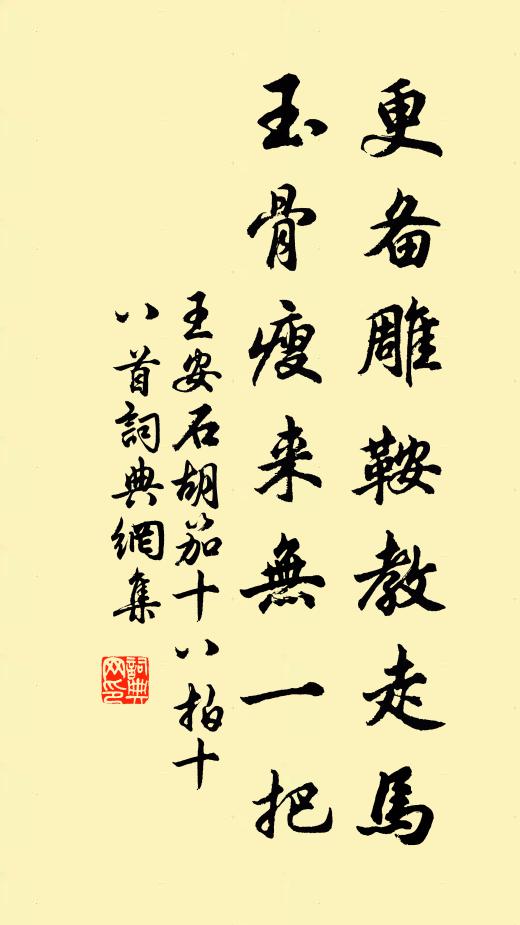 更备雕鞍教走馬
玉骨瘦来無一把
王安石胡笳十八拍十
八首詞典網集
詞典網印